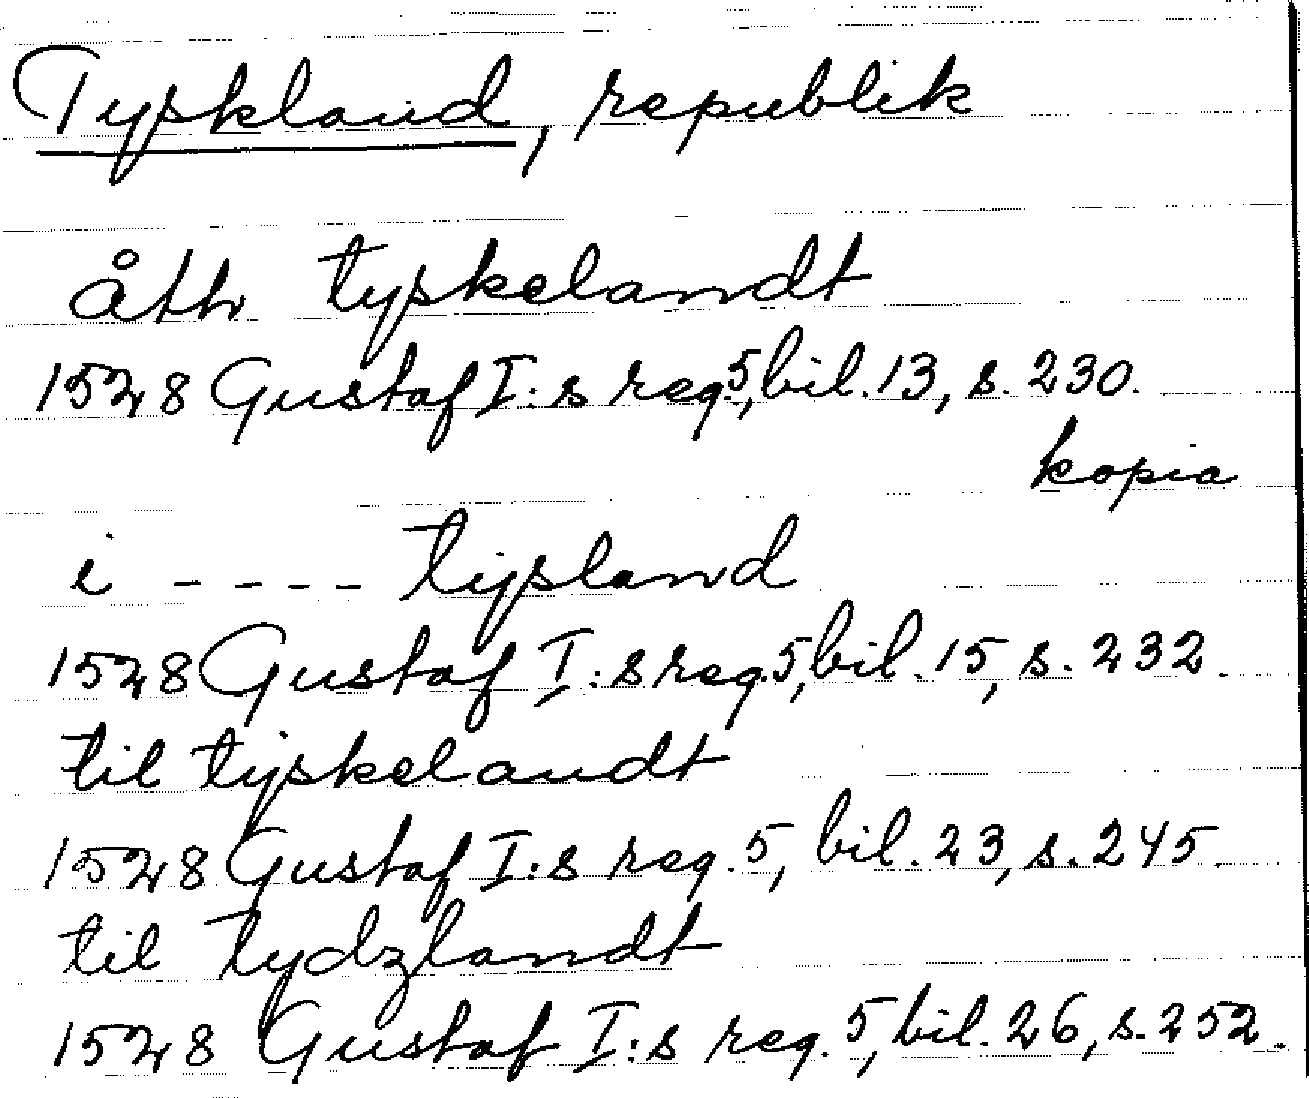 Tyskland, republik
åth tyskelandt
1528 Gustaf I:s reg. 5, bil. 13, s. 230.
kopia
i - - - - tijsland
1528 Gustaf I:s reg. 5, bil. 15, s. 232.
til tijskelandt
1528 Gustaf I:s reg. 5, bil. 23, s. 245.
til tydzlandt
1528 Gustaf I:s reg. 5, bil. 26, s. 252.